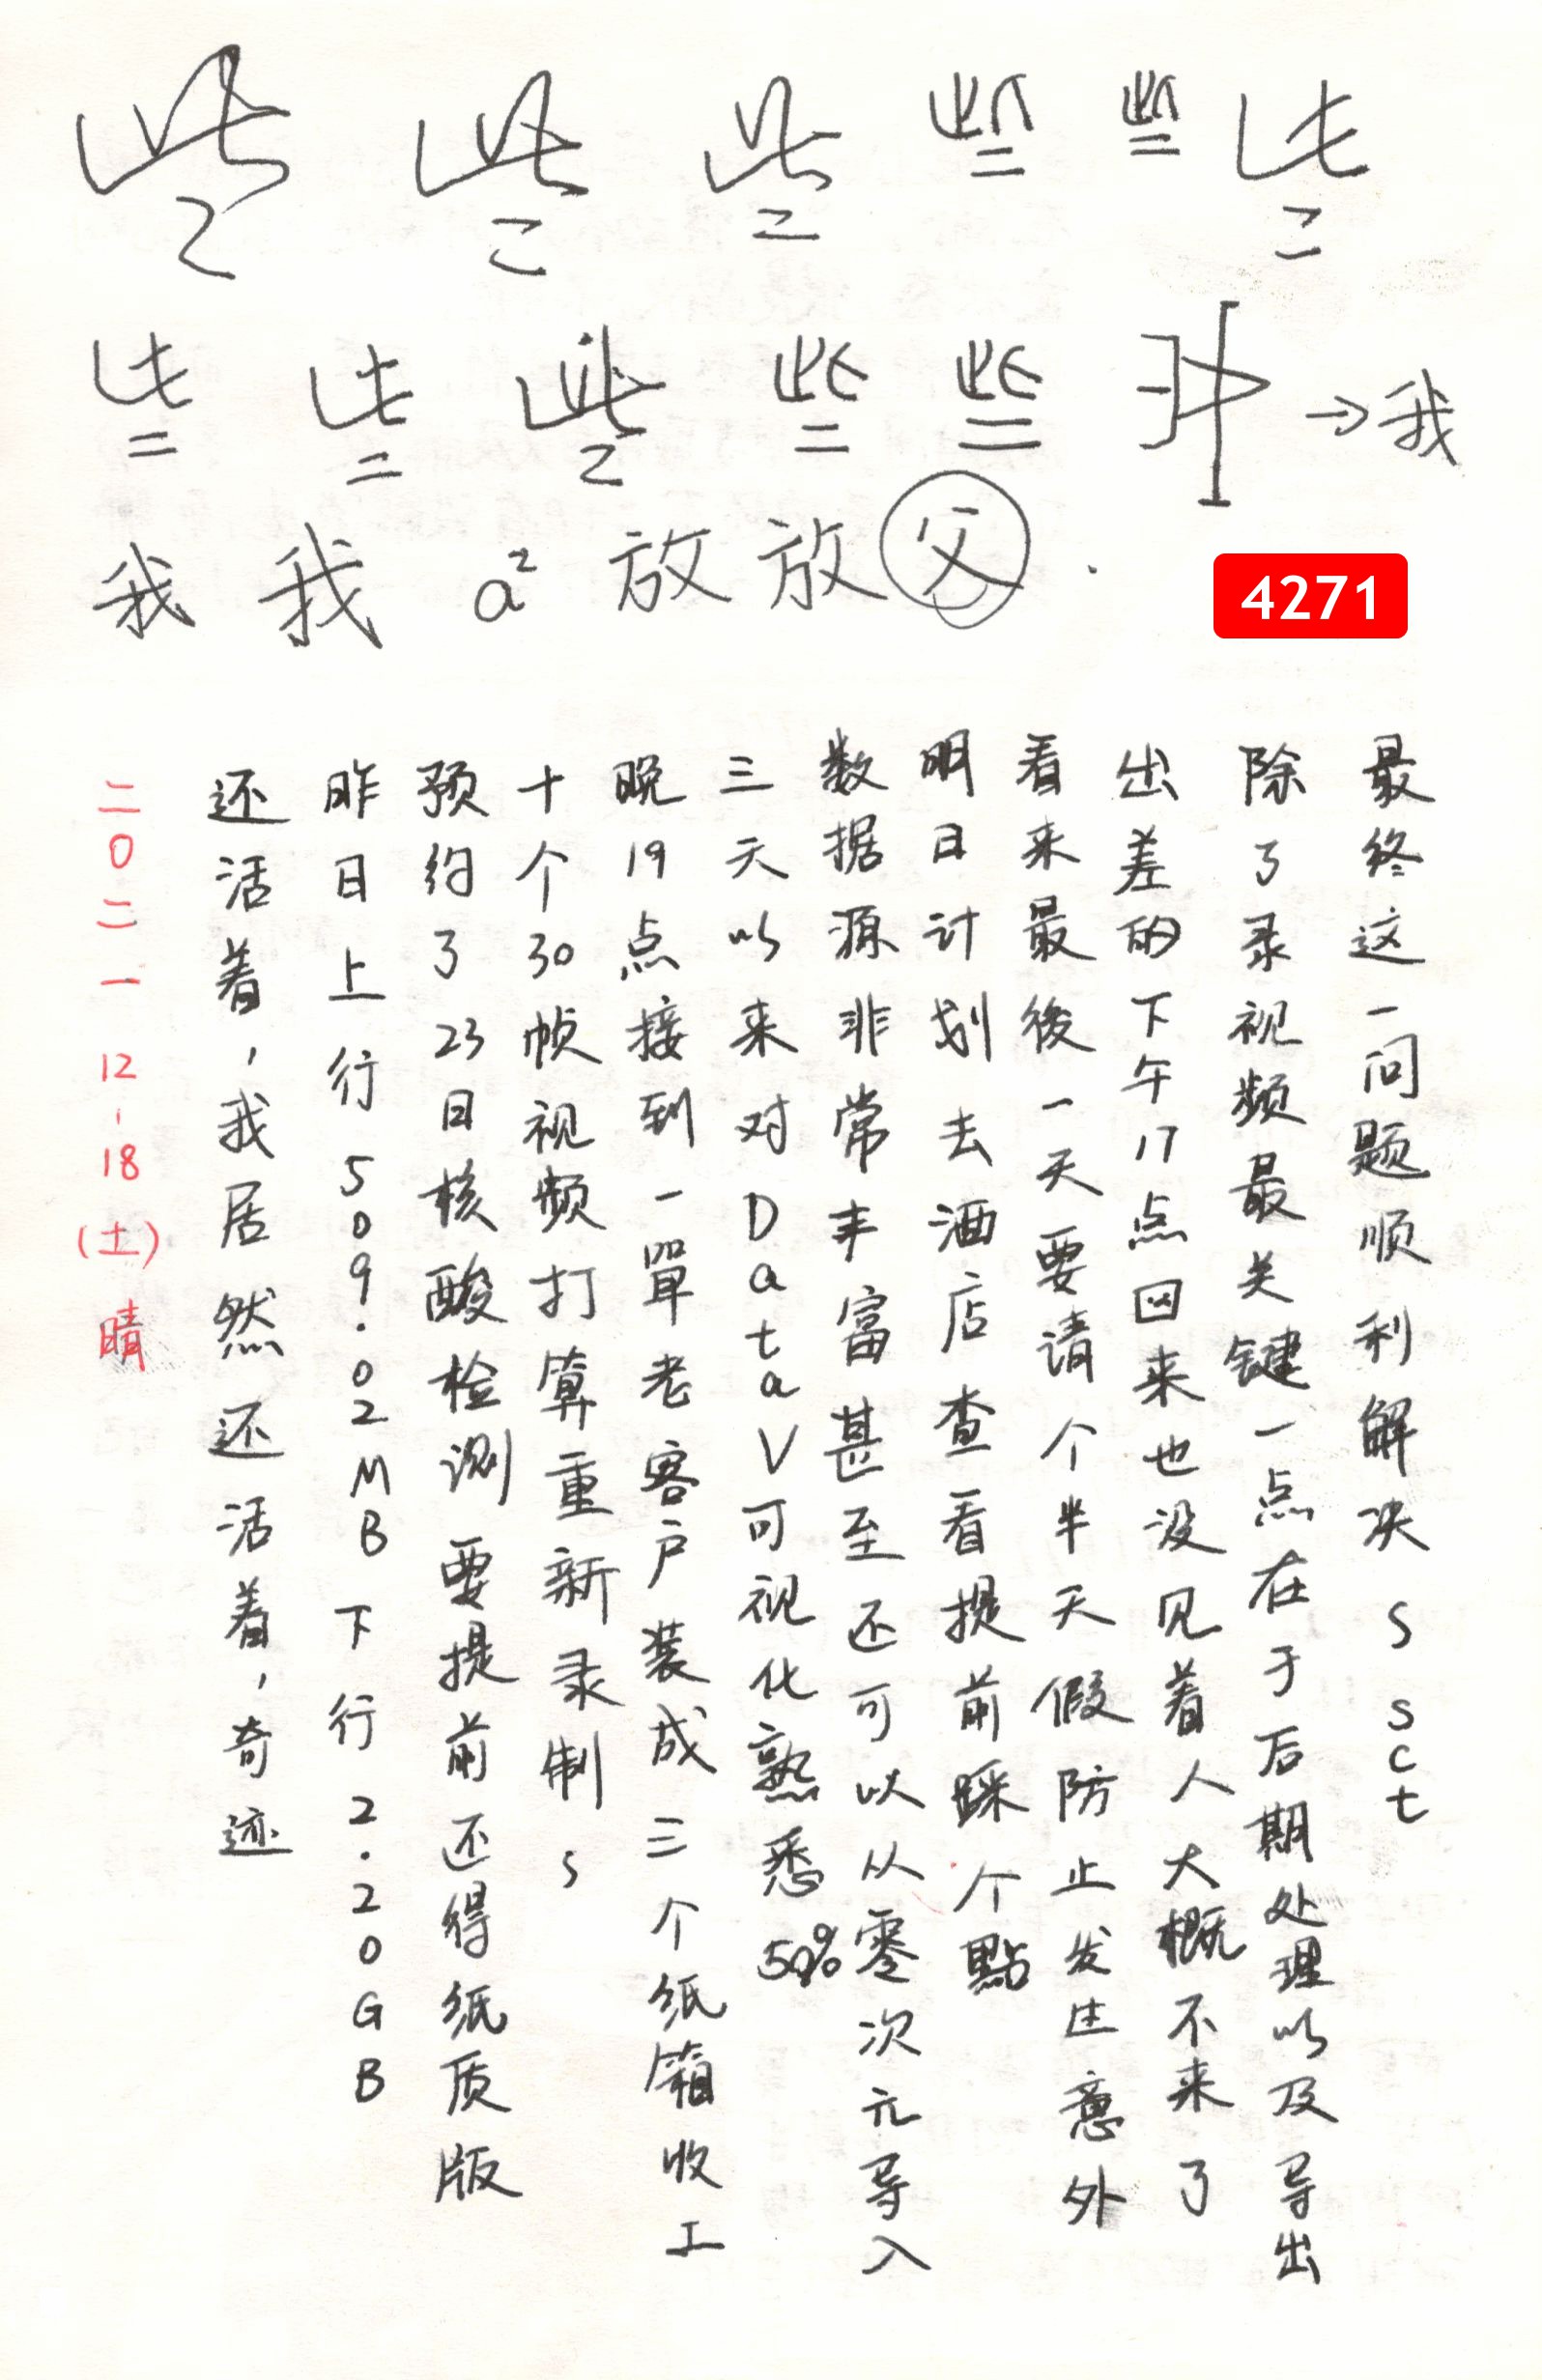 些 些 些 些 些 些
些 些 些 些 些 → 我
我 我 a² 放 放 父
4271
最终这一问题顺利解决 S sct
除了录视频最关键一点在于后期处理以及导出
出差的下午17点回来也没见着人大概不来了
看来最後一天要请个半天假防止发生意外
明日计划去酒店查看提前踩个點
数据源非常丰富甚至还可以从零次元导入
三天以来对DataV可视化熟悉50%
晚19点接到一單老客户装成三个纸箱收工
十个30帧视频打算重新录制 s
预约了23日核酸检测要提前还得纸质版
昨日上行509.02MB下行2.20GB
还活着，我居然还活着，奇迹
二〇二一 12-18 (土) 晴